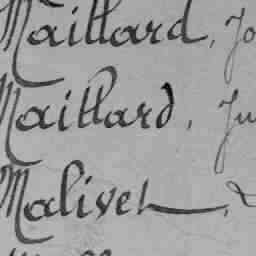 Maillard, Jo
Maillard, Ju
Malivet,